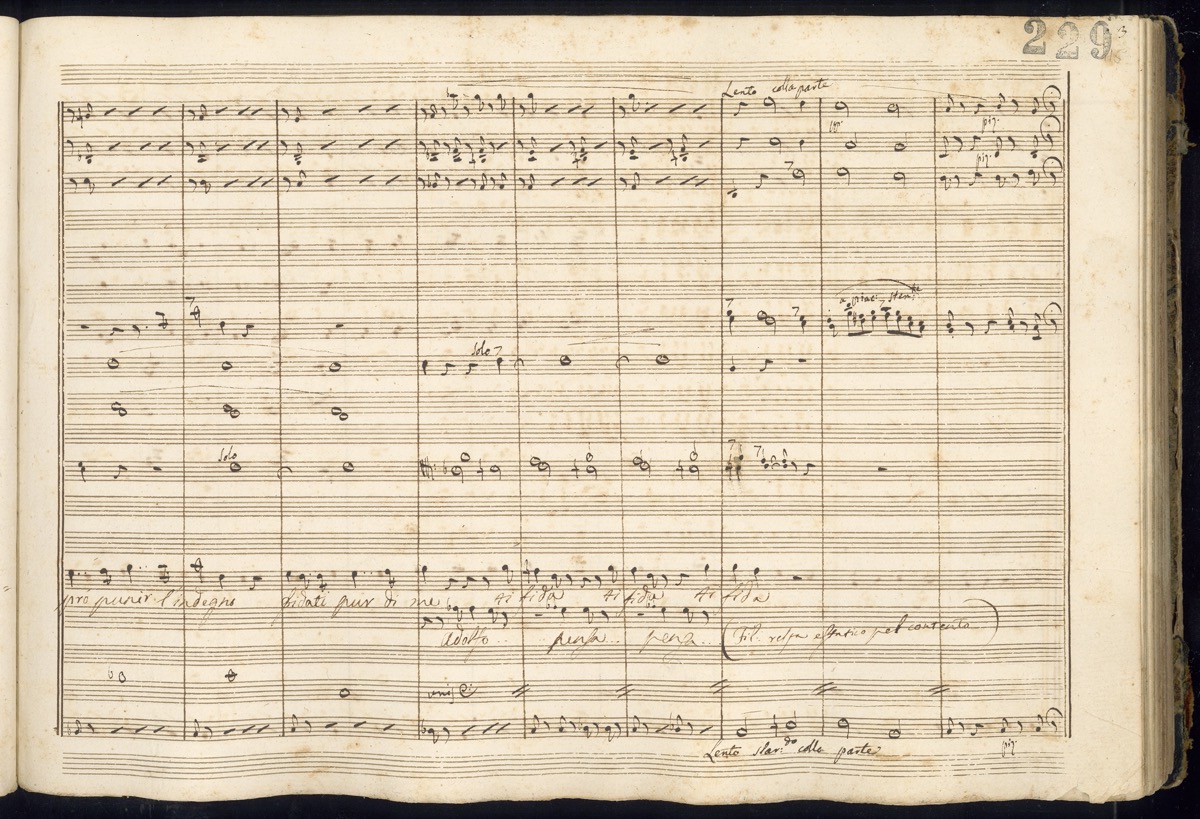 229
3
Lento colla parte
piz:
piz:
a piac:
Solo
Solo
prò punir l'indegno fidati pur di me ti fida ti fida ti fida
Adolfo.. pensa.. pensa..
(Fil. resta estatico pel contento)
unis
Lento slar:do colla parte
piz: